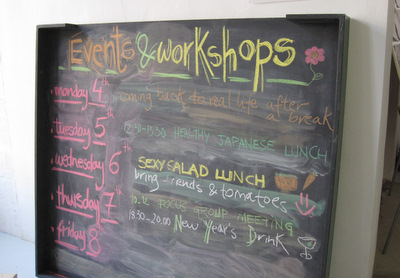 Events & workshops
monday 4th
coming back to real life after a break
tuesday 5th
12.30-13.30 HEALTHY JAPANESE LUNCH
wednesday 6th
SEXY SALAD LUNCH
bring friends & tomatoes
thursday 7th
10.12 FOCUS GROUP MEETING
18.30-20.00 New Year's Drink
friday 8th